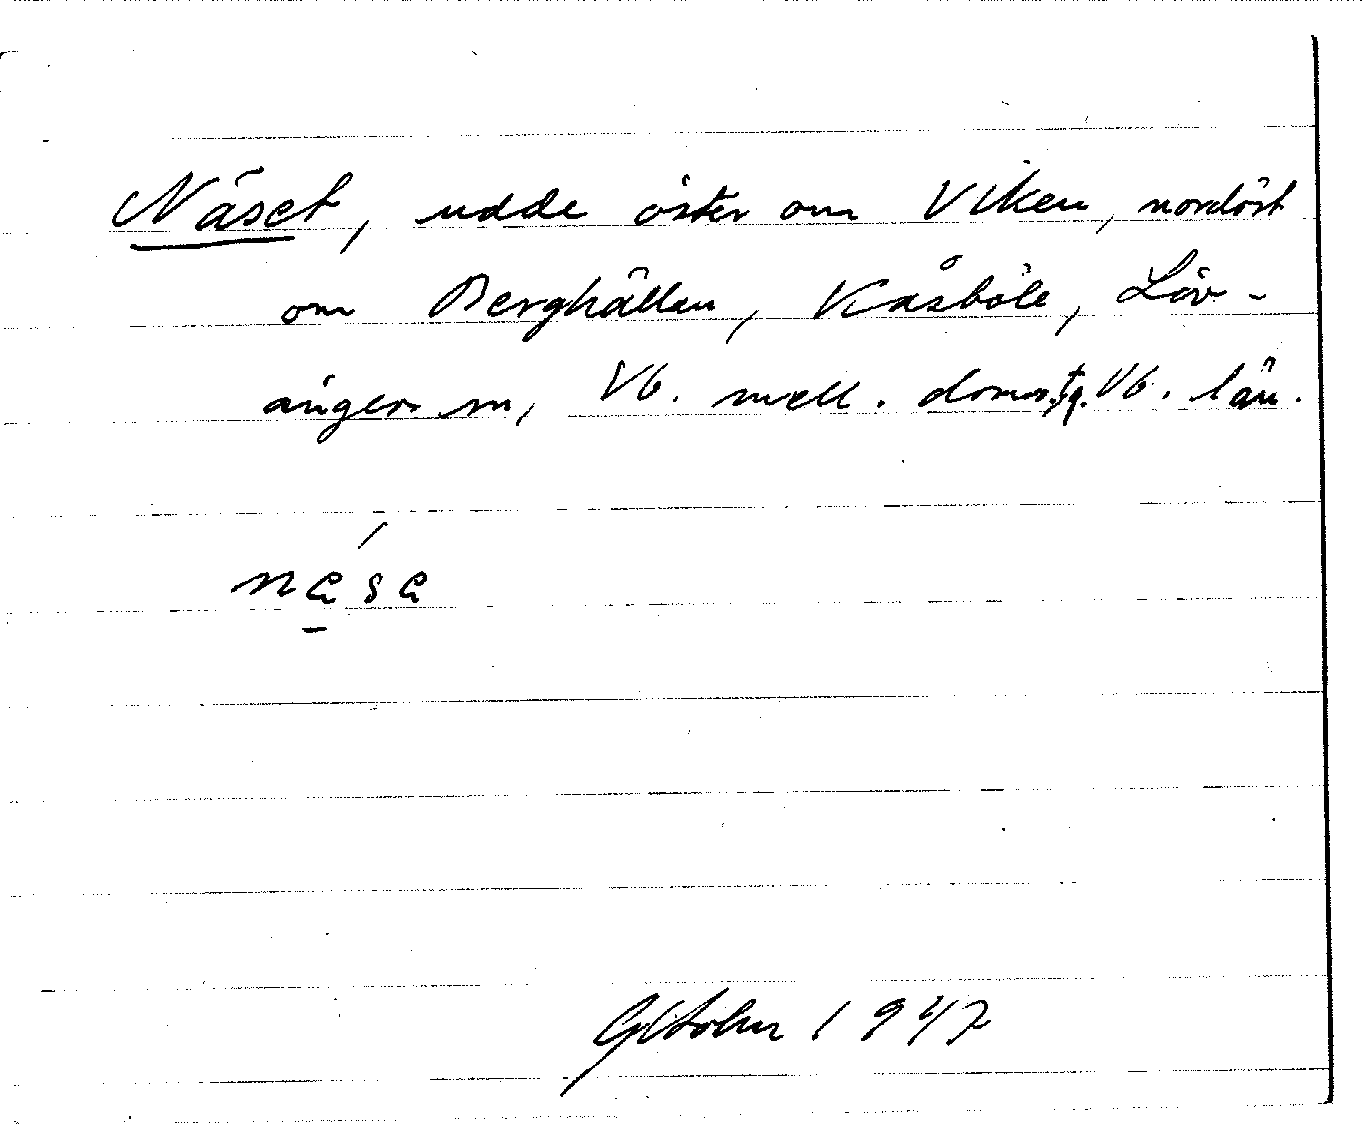 Näset, udde öster om Viken, nordöst
om Berghällan, Kåsböle, Löv-
ånger sn, Vb. mell. doms.tg. Vb. län.
nese
1947